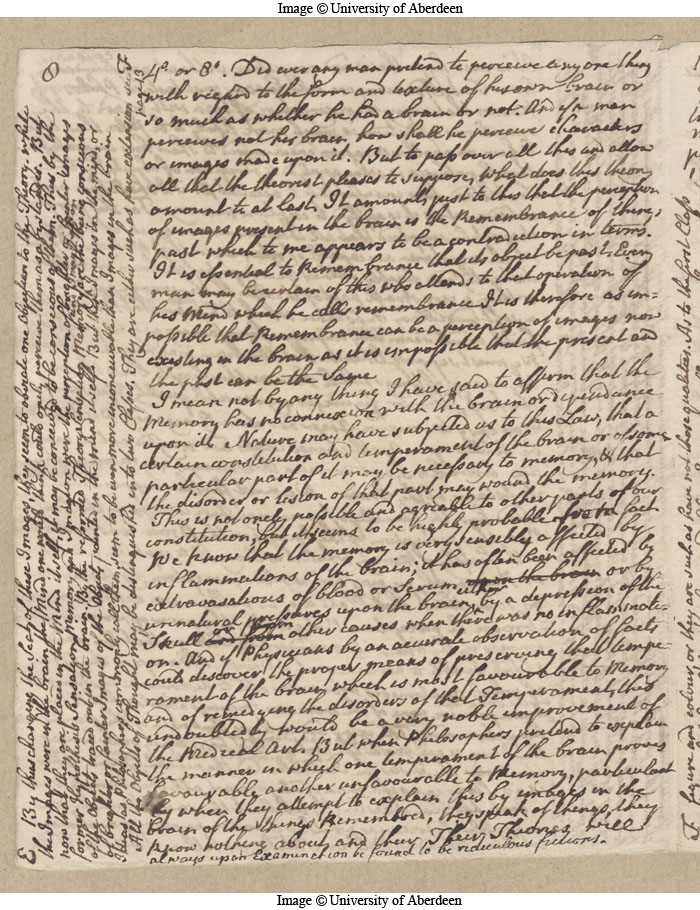 Image © University of Aberdeen
8
4º or 8º. Did ever any man pretend to perceive any one thing
with regard to the form and texture of his own brain or
so much as whether he had a brain or not. And if a man
perceives not his brain how shall he perceive characters
or images made upon it. But to pass over all this and allow
all that the theorist pleases to suppose, what does this theory
amount to at last. It amounts just to this that the perception
of images present in the brain is the Remembrance of things
past which to me appears to be a contradiction in terms.
It is essential to Remembrance that its object be past. Every
man may be certain of this who attends to that operation of
his Mind which he calls remembrance It is therefore as im-
possible that Remembrance can be a perception of images now
existing in the brain as it is impossible that the present and
the past can be the same
I mean not by any thing I have said to affirm that the
Memory has no connexion with the brain or dependance
upon it. Nature may have subjected us to this Law, that a
certain constitution and temperament of the brain or of some
particular part of it may be necessary to memory, & that
the disorder or lesion of that part may wound the memory.
This is not onely possible and agreable to other parts of our
constitution, but it seems to be highly probable fact
We know that the memory is very sensibly affected by
inflammations of the brain; it has often been affected by
extravasations of blood or Serum upon the brain or by
unnatural pressures upon the brain either by a depression of the
Skull other causes when there was no inflammati-
on. And if Physicians by an accurate observation of facts
could discover the proper means of preserving that tempe-
rament of the brain which is most favourable to Memory
and of remedying the disorders of that Temperament, this
undoubtedly would be a very noble improvement of
the Medical Art. But when Philosophers pretend to explain
the manner in which one temperament of the brain proves
favourable another unfavourable to Memory, particular
ly when they attempt to explain this by images in the
brain of the things Remembred, they speak of things they
know nothing about, and their Theories will
always upon Examination be found to be ridiculous fictions.
By thus changing the Seat of these Images they seem to obviate one Objection to the Theory, while
the Images were in the brain, the Mind one would think could only perceive them as a bystander. But
now that they are placed in the Mind itself, it may be conceived to be conscious of them. Thus by the
former Hypothesis Sensation Memory and Imagination were the perception of
of the Objects traced out in the brain.
of brighter or fainter Images of the Objects painted in the mind itself. But these Images in the mind, or
Ideas as Philosophers commonly call them, seem to be even more inconceivable than Images in the brain
All the Objects of Thought may be distinguished into two Classes, They are either such as have extension
figure and colour, or they are such as have not these qualities. As to the first Class
Image © University of Aberdeen